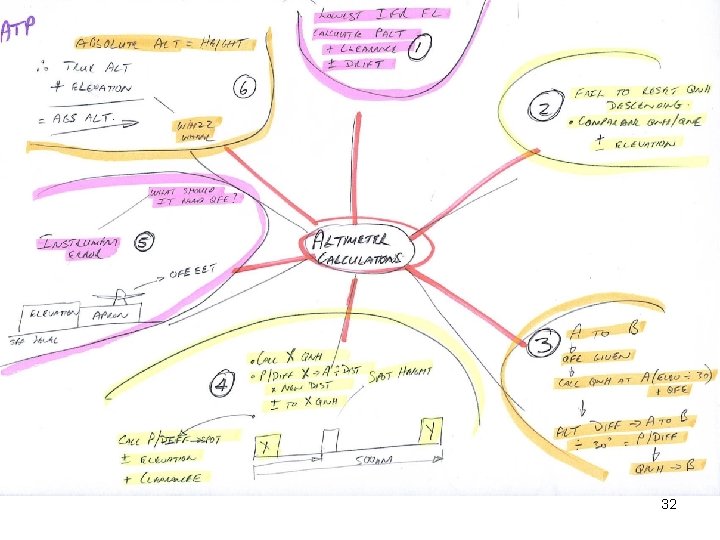 ATP
LOWEST IFR FL
CALCULATE PALT
+ CLEARANCE
± DRIFT
1
FAIL TO RESET QNH
DESCENDING.
• COMPARE QNH/QNE
± ELEVATION
2
A TO B
QFE GIVEN
CALC QNH AT A (ELEV ÷ 30)
+ QFE
ALT DIFF → A TO B
÷ 30' = P/DIFF
QNH → B
3
• CALC X QNH
• P/DIFF X → A ÷ DIST
× NEW DIST
± TO X QNH
SPOT HEIGHT
4
CALC P/DIFF → SPOT
± ELEVATION
+ CLEARANCE
X
Y
500NM
WHAT SHOULD
IT READ QFE?
INSTRUMENT
ERROR
5
ELEVATION
APRON
ABSOLUTE ALT = HEIGHT
∴ TRUE ALT
+ ELEVATION
= ABS ALT.
6
ALTIMETER
CALCULATIONS
32